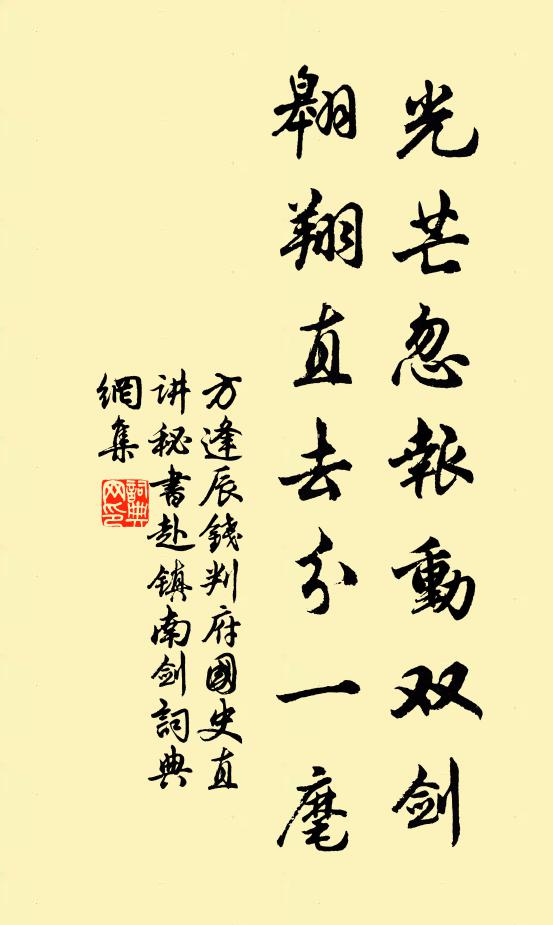 光芒忽報動双剑
翱翔直去分一麾
方逢辰錢判府國史直
讲秘書赴镇南剑詞典
網集
詞典
网印